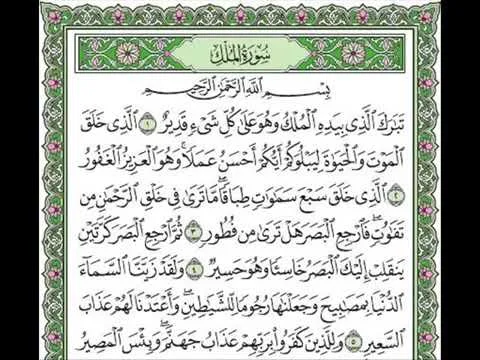 سُورَةُ المُلْكِ
بِسْمِ ٱللَّهِ ٱلرَّحْمَٰنِ ٱلرَّحِيمِ
تَبَٰرَكَ ٱلَّذِى بِيَدِهِ ٱلْمُلْكُ وَهُوَ عَلَىٰ كُلِّ شَىْءٍ قَدِيرٌ ١ ٱلَّذِى خَلَقَ
ٱلْمَوْتَ وَٱلْحَيَوٰةَ لِيَبْلُوَكُمْ أَيُّكُمْ أَحْسَنُ عَمَلًا ۚ وَهُوَ ٱلْعَزِيزُ ٱلْغَفُورُ
٢ ٱلَّذِى خَلَقَ سَبْعَ سَمَٰوَٰتٍ طِبَاقًا ۖ مَّا تَرَىٰ فِى خَلْقِ ٱلرَّحْمَٰنِ مِن
تَفَٰوُتٍ ۖ فَٱرْجِعِ ٱلْبَصَرَ هَلْ تَرَىٰ مِن فُطُورٍ ٣ ثُمَّ ٱرْجِعِ ٱلْبَصَرَ كَرَّتَيْنِ
يَنقَلِبْ إِلَيْكَ ٱلْبَصَرُ خَاسِئًا وَهُوَ حَسِيرٌ ٤ وَلَقَدْ زَيَّنَّا ٱلسَّمَآءَ
ٱلدُّنْيَا بِمَصَٰبِيحَ وَجَعَلْنَٰهَا رُجُومًا لِّلشَّيَٰطِينِ ۖ وَأَعْتَدْنَا لَهُمْ عَذَابَ
ٱلسَّعِيرِ ٥ وَلِلَّذِينَ كَفَرُوا۟ بِرَبِّهِمْ عَذَابُ جَهَنَّمَ ۖ وَبِئْسَ ٱلْمَصِيرُ